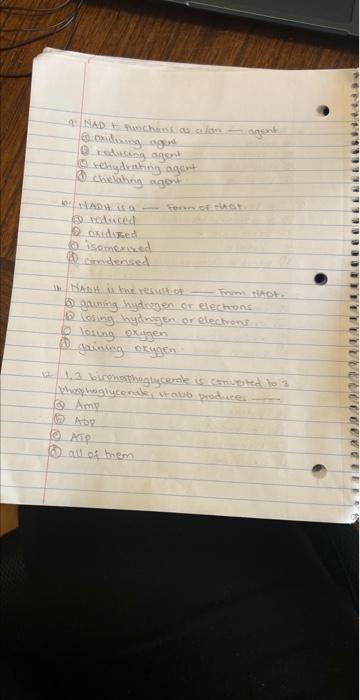 9. NAD + functions as a/an — agent
ⓐ oxidizing agent
ⓑ reducing agent
ⓒ rehydrating agent
ⓓ chelating agent
10. NADH is a — Form of NAD+.
ⓐ reduced
ⓑ oxidized
ⓒ isomerized
ⓓ condensed
11. NADH is the result of — from NAD+.
ⓐ gaining hydrogen or electrons
ⓑ losing hydrogen or electrons
ⓒ losing oxygen
ⓓ gaining oxygen.
12. 1,3 bisphosphoglycerate is converted to 3
phosphoglycerate, it also produces —
ⓐ AMP
ⓑ ADP
ⓒ ATP
ⓓ all of them